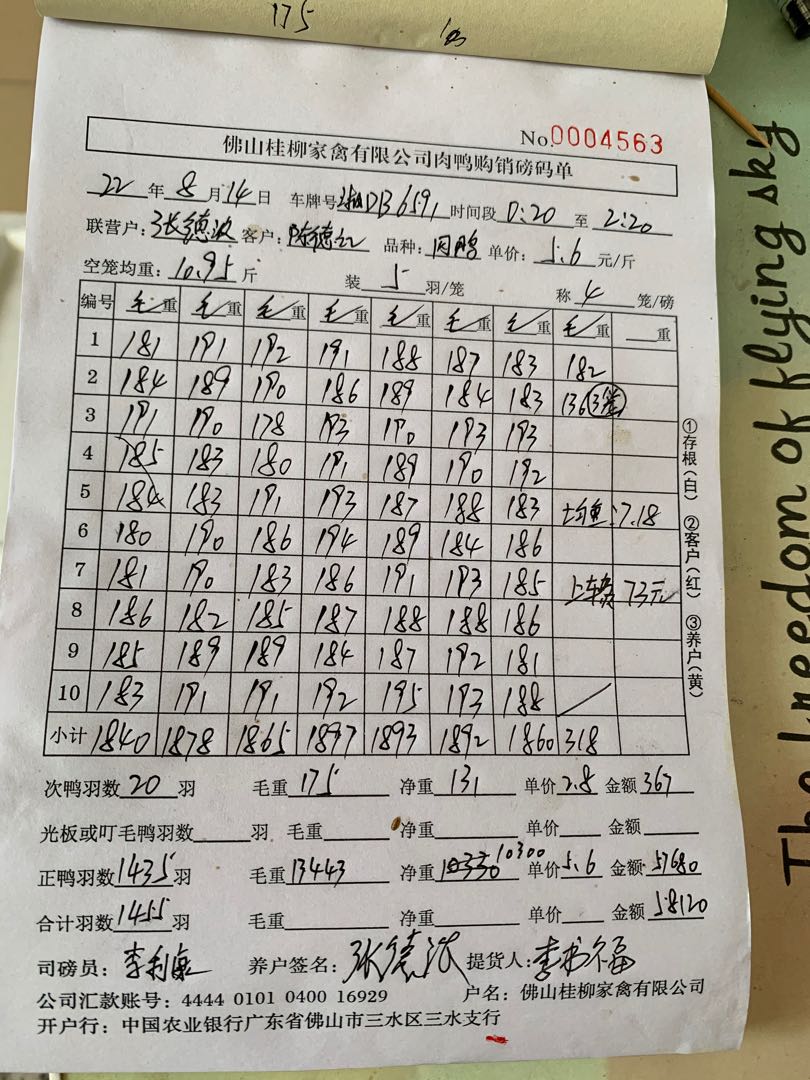 175
No.0004563
佛山桂柳家禽有限公司肉鸭购销磅码单
22 年 8 月 14 日 车牌号 湘DB6591 时间段 0:20 至 2:20
联营户：张德波 客户：陈德 品种： 单价：5.6 元/斤
空笼均重：10.95 斤 装 5 羽/笼 称 4 笼/磅
编号 毛重 毛重 毛重 毛重 毛重 毛重 毛重 毛重 重
1 181 191 192 191 188 187 183 182
2 184 189 190 186 189 184 183 136 (3笼)
3 191 190 178 193 190 193 193
4 185 183 180 191 189 190 192
5 184 183 191 193 187 188 183 均重：7.18
6 180 190 186 194 189 184 186
7 181 190 183 186 191 193 185 上车费 73元
8 186 182 185 187 188 188 186
9 185 189 189 184 187 192 181
10 183 191 191 192 195 193 188
小计 1840 1878 1865 1897 1893 1892 1860 318
①存根（白） ②客户（红） ③养户（黄）
次鸭羽数 20 羽 毛重 175 净重 131 单价 2.8 金额 367
光板或叮毛鸭羽数 羽 毛重 净重 单价 金额
正鸭羽数 1435 羽 毛重 13443 净重 10300 单价 5.6 金额 57680
合计羽数 1455 羽 毛重 净重 单价 金额 58120
司磅员：李利康 养户签名：张德波 提货人：李书福
公司汇款账号：4444 0101 0400 16929 户名：佛山桂柳家禽有限公司
开户行：中国农业银行广东省佛山市三水区三水支行
The freedom of flying sky